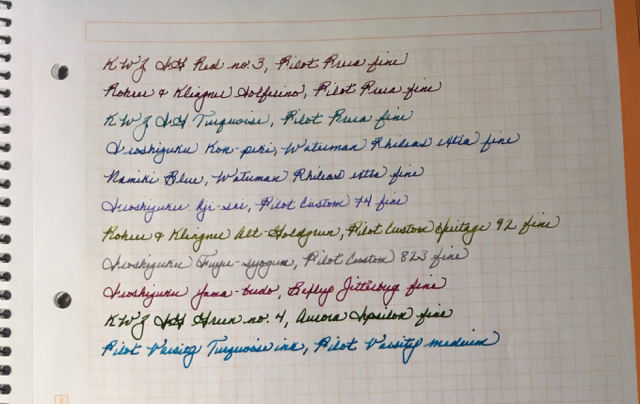 KWZ IG Red no. 3, Pilot Prera fine
Rohrer & Klingner Solferino, Pilot Prera fine
KWZ IG Turquoise, Pilot Prera fine
Iroshizuku Kon-peki, Waterman Phileas extra fine
Namiki Blue, Waterman Phileas extra fine
Iroshizuku Aji-sai, Pilot Custom 74 fine
Rohrer & Klingner Alt-Goldgrun, Pilot Custom Heritage 92 fine
Iroshizuku Fuyu-syogun, Pilot Custom 823 fine
Iroshizuku Yama-budo, Jitterbug fine
KWZ IG Green no. 4, Aurora Ipsilon fine
Pilot Varsity Turquoise ink, Pilot Varsity medium